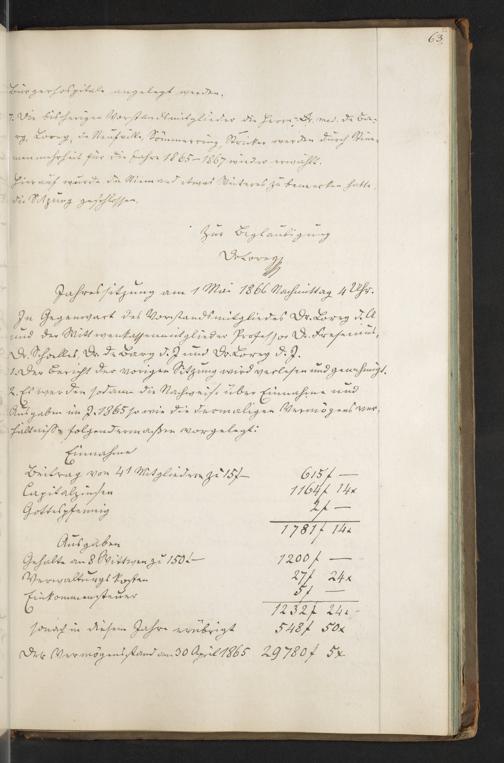 63.
Bürgerhospitale angelegt werden.
7. Die bisherigen Vorstandsmitglieder die Herrn: Dr. med. de Ba-
ry, Lorey, de Neufville, Sömmerring, Stricker werden durch Stim-
menmehrheit für die Jahre 1865–1867 wieder erwählt.
Hierauf wurde da Niemand etwas Weiteres zu bemerken hatte,
die Sitzung geschlossen.
Zur Beglaubigung
Dr Lorey
Jahressitzung am 1 Mai 1866 Nachmittag 4 Uhr.
In Gegenwart des Vorstandsmitgliedes Dr. Lorey d. Ä
und der Wittwenkassenmitglieder Professor Dr. Fresenius,
Dr. Schölles, Dr. de Bary d. J. und Dr. Lorey d. J.
1. Der Bericht der vorigen Sitzung wird verlesen und genehmigt.
2. Es werden sodann die Nachweise über Einnahme und
Ausgaben im J. 1865 sowie die dermaligen Vermögensver-
hältnisse folgendermaßen vorgelegt:
Einnahme
Beitrag von 41 Mitgliedern zu 15f – 615f —
Capitalzinsen 1164f 14x
Gottespfennig 2f —
1781f 14x
Ausgaben
Gehalte an 8 Wittwen zu 150f – 1200f —
Verwaltungskosten 27f 24x
Einkommensteuer 5f —
1232f 24x
sonach in diesem Jahre erübrigt 548f 50x
Der Vermögensstand am 30 April 1865 29780f 5x